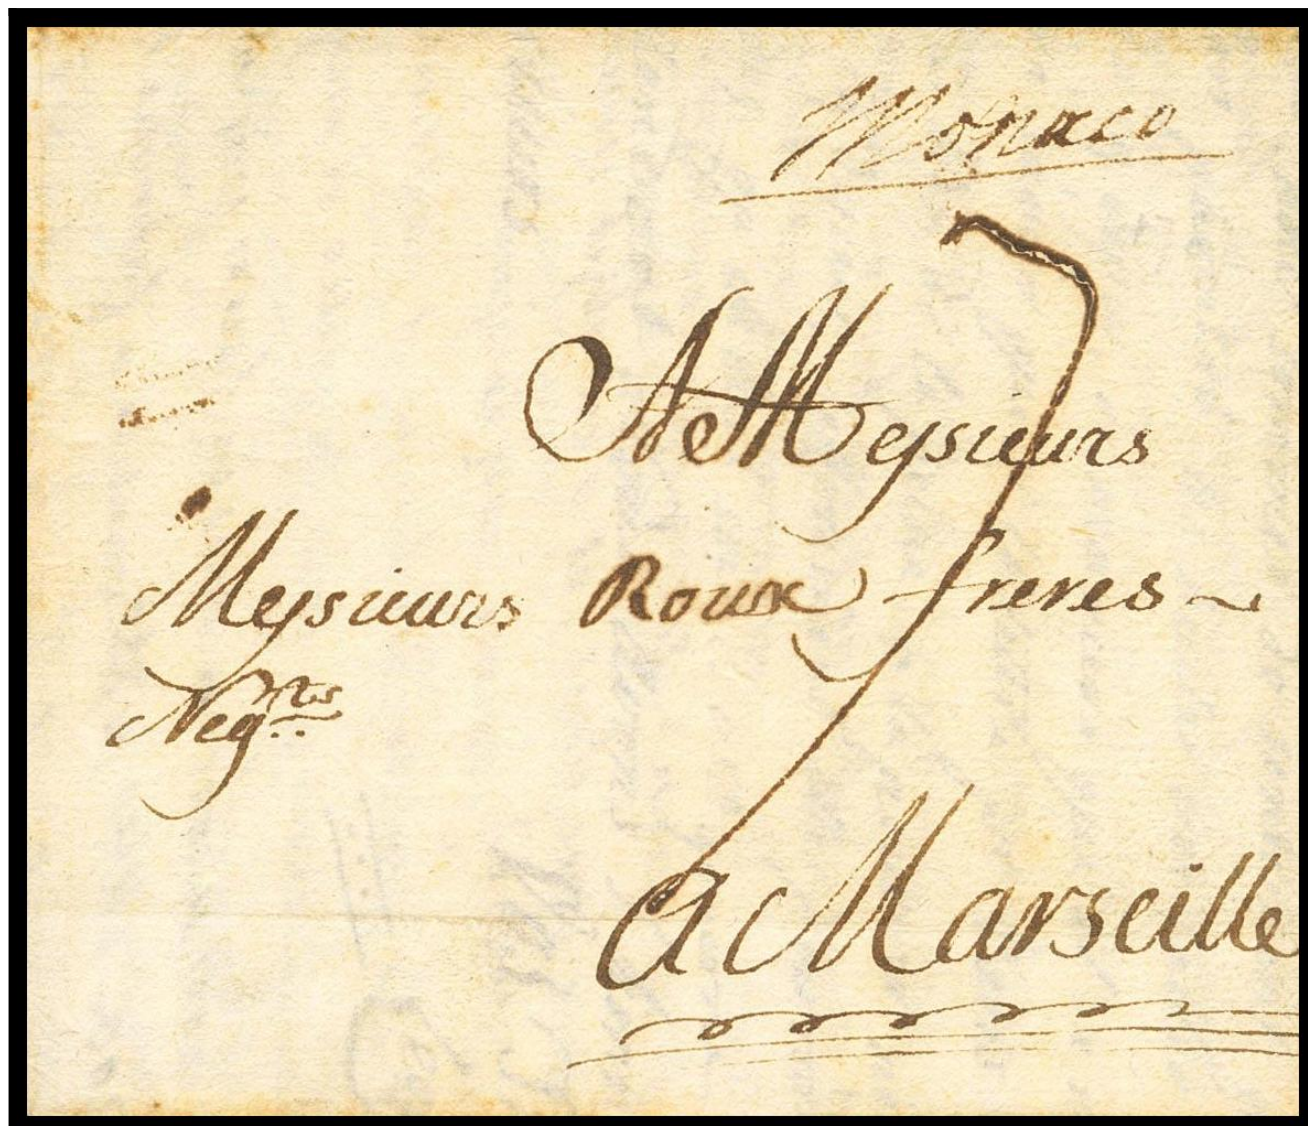 Monaco
7
A Messieurs
Messieurs Roux freres
Neg.ts
A Marseille